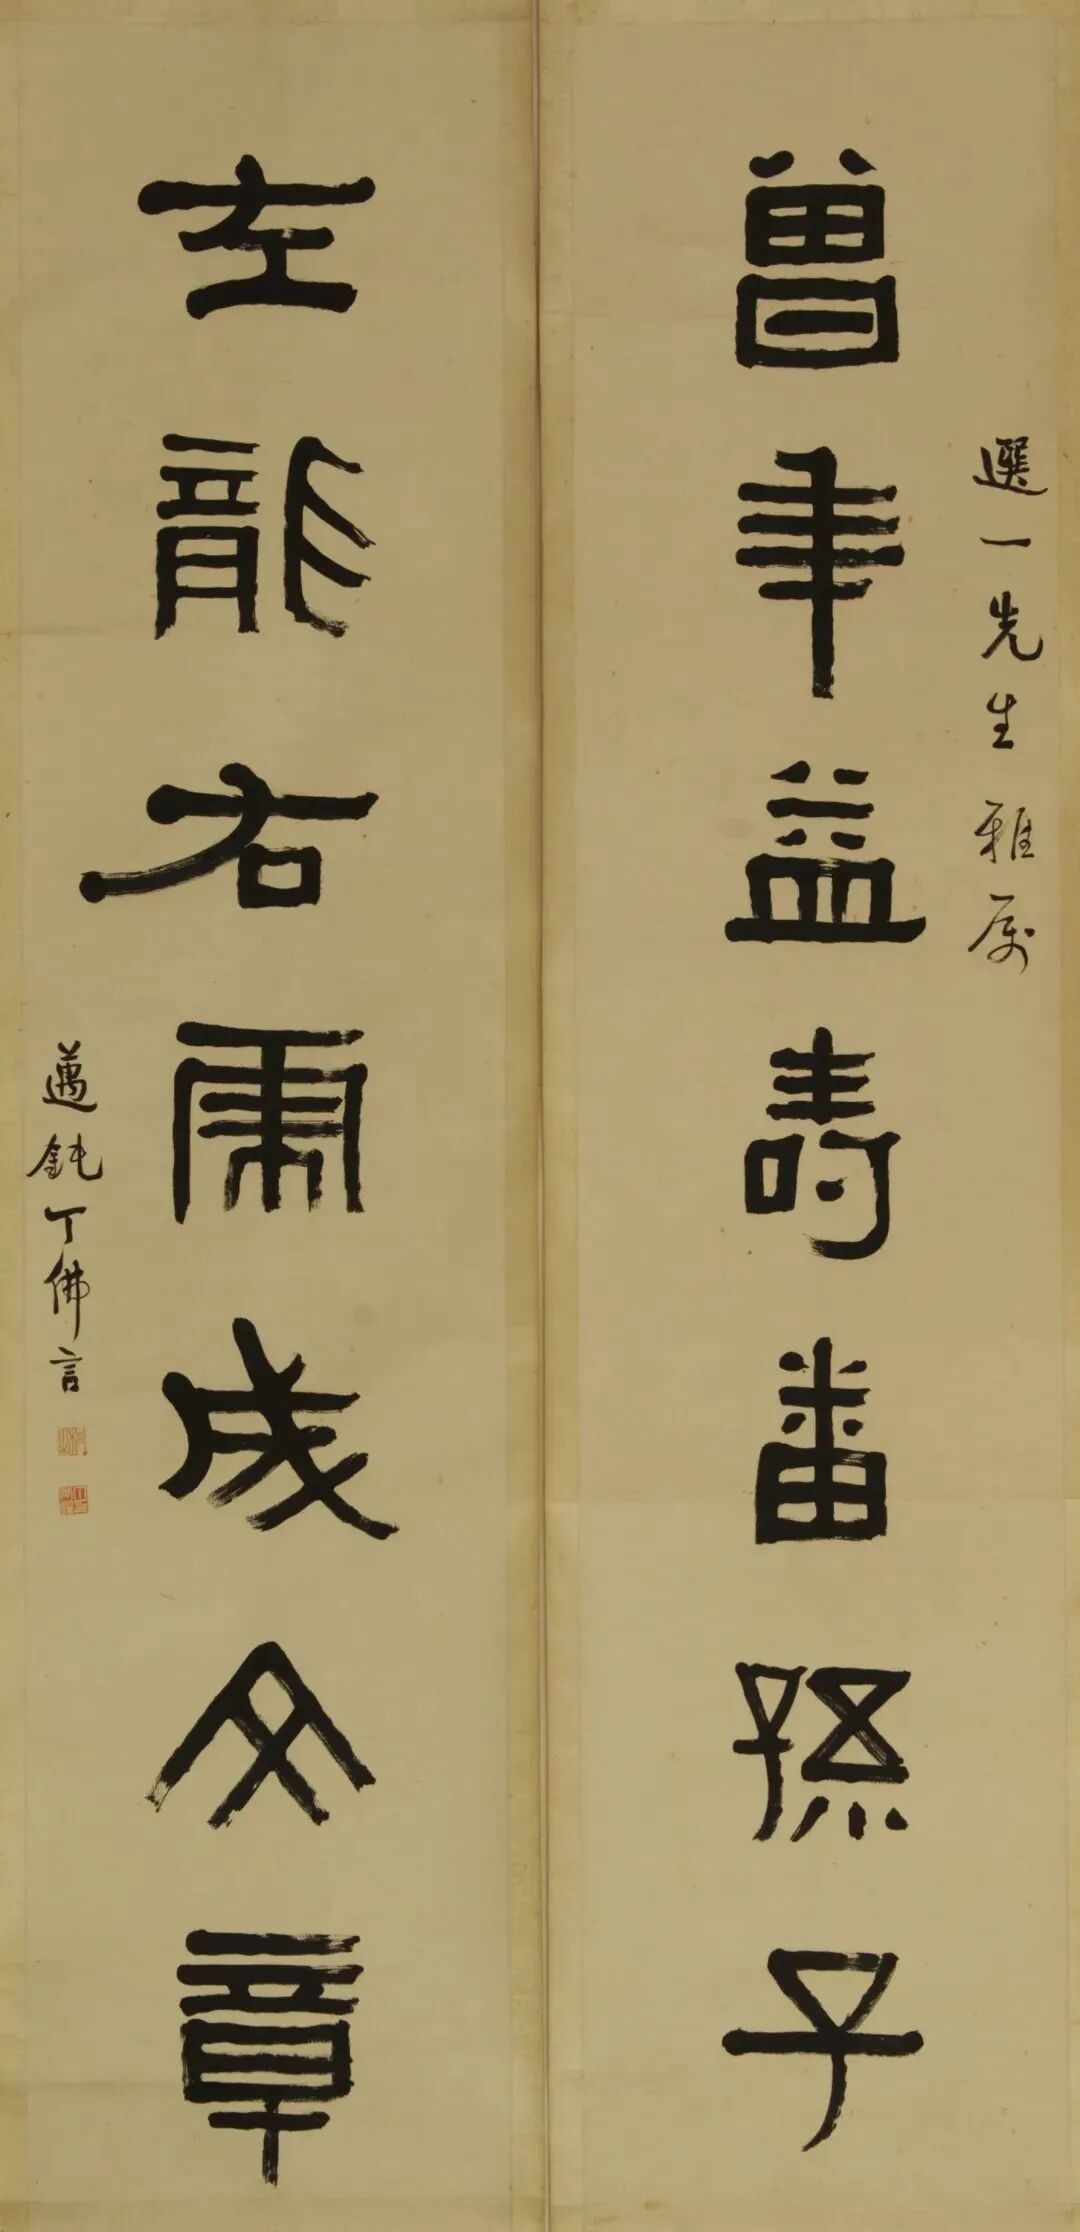 選一先生雅属
曾年益壽番孫子
左龍右虎成文章
邁鈍丁佛言